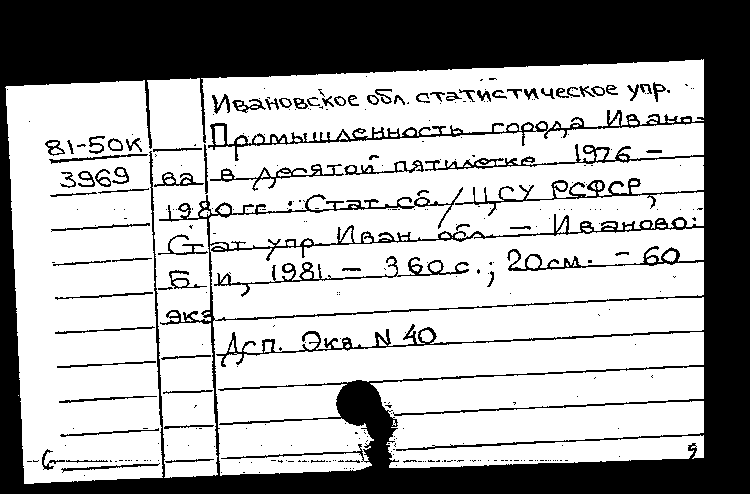 Ивановское обл. статистическое упр.
81-50к Промышленность города Ивано-
3969 ва в десятой пятилетке 1976 –
1980 гг : Стат. сб. / ЦСУ РСФСР,
Стат. упр. Иван. обл. – Иваново:
Б. и, 1981. – 360 с.; 20 см. – 60
экз.
Дсп. Экз. N 40
6